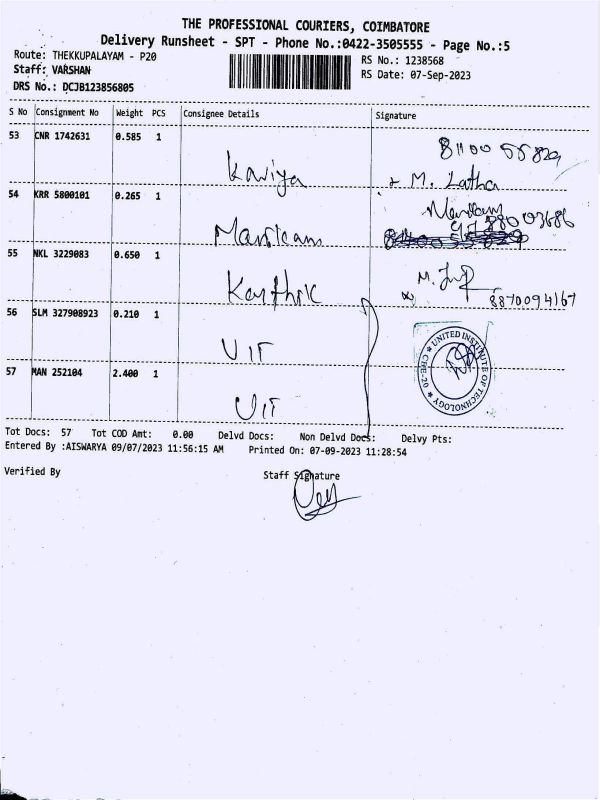 THE PROFESSIONAL COURIERS, COIMBATORE
Delivery Runsheet - SPT - Phone No.:0422-3505555 - Page No.:5
Route: THEKKUPALAYAM - P20
RS No.: 1238568
Staff: VARSHAN
RS Date: 07-Sep-2023
DRS No.: DCJB123856805
S No Consignment No Weight PCS Consignee Details Signature
53 CNR 1742631 0.585 1
Kaviya
M. Latha
54 KRR 5800101 0.265 1
Manikam
55 NKL 3229083 0.650 1
Karthik
8870094167
56 SLM 327908923 0.210 1
UIT
UNITED INSTITUTE OF TECHNOLOGY
CBE-20
57 MAN 252104 2.400 1
UIT
Tot Docs: 57 Tot COD Amt: 0.00 Delvd Docs: Non Delvd Docs: Delvy Pts:
Entered By :AISWARYA 09/07/2023 11:56:15 AM Printed On: 07-09-2023 11:28:54
Verified By Staff Signature